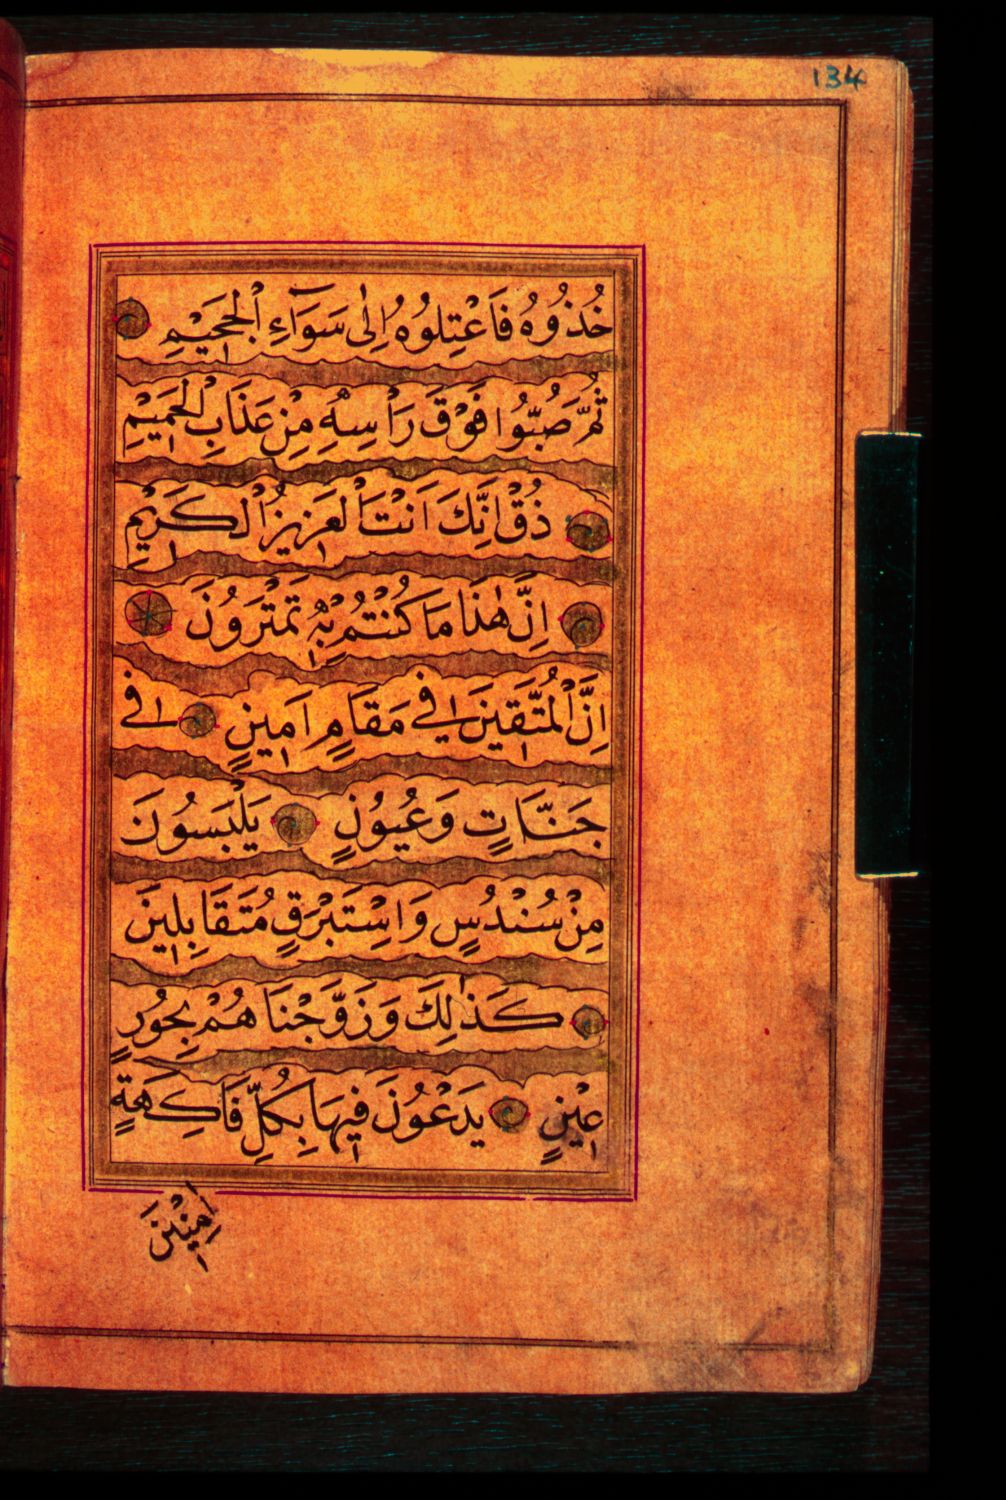 134
خُذُوهُ فَاعْتِلُوهُ اِلٰى سَوَآءِ الْجَحِيْمِ
ثُمَّ صُبُّوا فَوْقَ رَاْسِهٖ مِنْ عَذَابِ الْحَمِيْمِ
ذُقْ اِنَّكَ اَنْتَ الْعَزِيزُ الْكَرِيْمُ
اِنَّ هٰذَا مَا كُنْتُمْ بِهٖ تَمْتَرُونَ
اِنَّ الْمُتَّقِينَ فِي مَقَامٍ اَمِينٍ فِي
جَنَّاتٍ وَعُيُوْنٍ يَلْبَسُونَ
مِنْ سُنْدُسٍ وَاِسْتَبْرَقٍ مُتَقَابِلِينَ
كَذٰلِكَ وَزَوَّجْنَاهُمْ بِحُورٍ
عِيْنٍ يَدْعُونَ فِيهَا بِكُلِّ فَاكِهَةٍ
اٰمِنِينَ